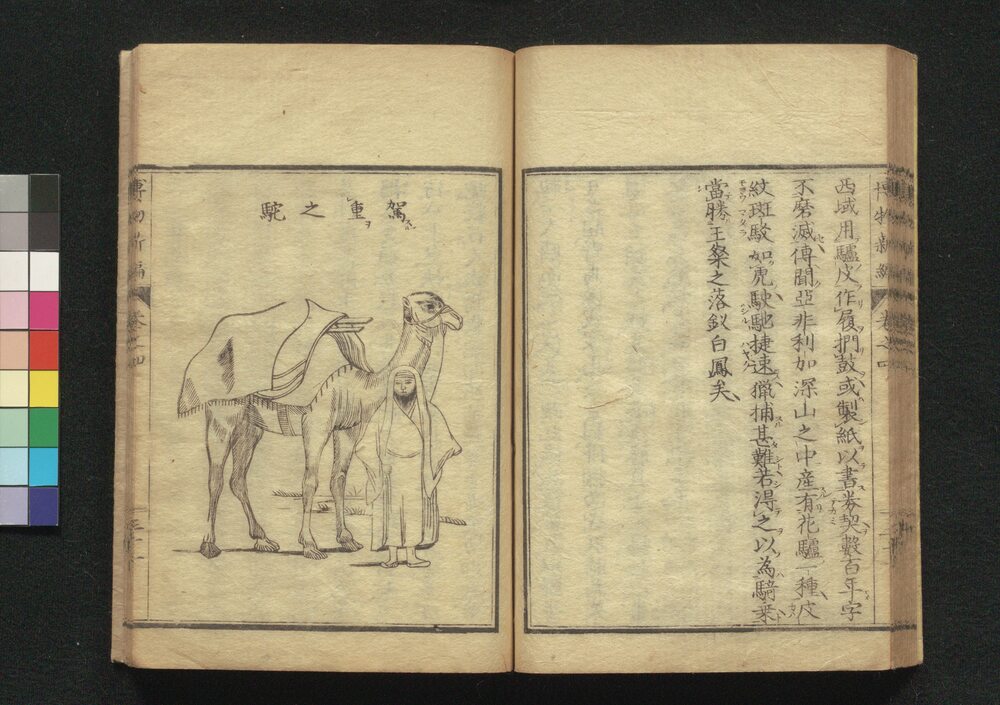 博物新編
卷之四
西域用驢皮作履捫鼓或製紙以書券契數百年字
不磨滅傳聞亞非利加深山之中產有花驢一種皮
紋斑駁如虎駛馳捷速獵捕甚難若得之以為騎乗
當勝王粲之落釵白鳳矣
駕重之駝
博物新編
卷之四